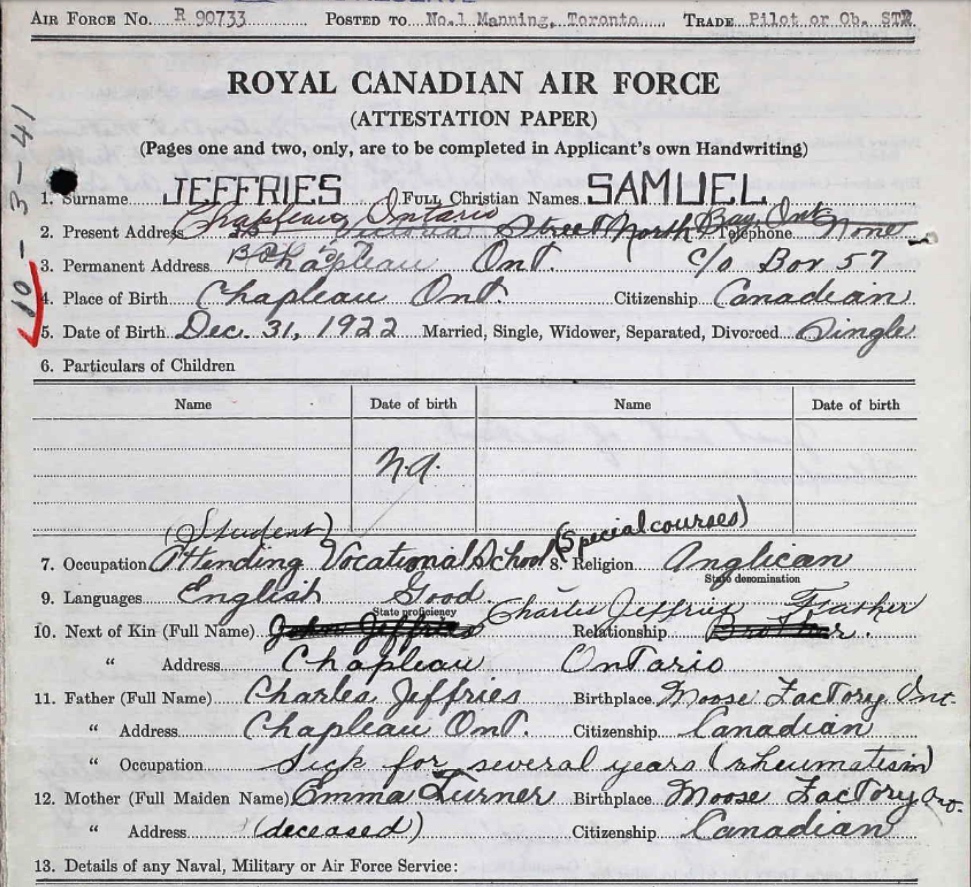 AIR FORCE NO. R 90733 POSTED TO No.1 Manning, Toronto TRADE Pilot or Ob. STR
ROYAL CANADIAN AIR FORCE
(ATTESTATION PAPER)
(Pages one and two, only, are to be completed in Applicant's own Handwriting)
10-3-41
1. Surname JEFFRIES FULL Christian Names SAMUEL
Chapleau, Ontario Bay, Ont
2. Present Address Victoria Street North Telephone None
3. Permanent Address Chapleau Ont. c/o Box 57
4. Place of Birth Chapleau Ont. Citizenship Canadian
5. Date of Birth Dec. 31, 1922 Married, Single, Widower, Separated, Divorced Single
6. Particulars of Children
Name Date of birth Name Date of birth
N.A.
(Student) (Special courses)
7. Occupation Attending Vocational School 8. Religion Anglican
State denomination
9. Languages English Good
State proficiency Charles Jeffries Father
10. Next of Kin (Full Name) John Jeffries Relationship Brother.
" Address Chapleau Ontario
11. Father (Full Name) Charles Jeffries Birthplace Moose Factory Ont.
" Address Chapleau Ont. Citizenship Canadian
" Occupation Sick for several years (rheumatism)
12. Mother (Full Maiden Name) Emma Turner Birthplace Moose Factory Ont.
" Address (deceased) Citizenship Canadian
13. Details of any Naval, Military or Air Force Service: